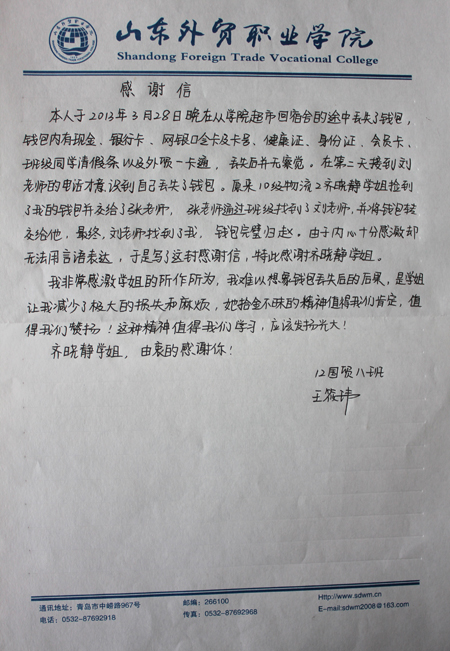 山东外贸职业学院
Shandong Foreign Trade Vocational College
感谢信
本人于2013年3月28日晚在从学院超市回宿舍的途中丢失了钱包,
钱包内有现金、银行卡、网银口令卡及卡号、健康证、身份证、会员卡、
班级同学请假条以及外贸一卡通,丢失后并无察觉。在第二天接到刘
老师的电话才意识到自己丢失了钱包。原来10级物流2齐晓静学姐捡到
了我的钱包并交给了张老师,张老师通过班级找到了刘老师,并将钱包转
交给他,最终,刘老师找到了我,钱包完璧归赵。由于内心十分感激却
无法用言语表达,于是写了这封感谢信,特此感谢齐晓静学姐。
我非常感激学姐的所作所为,我难以想象钱包丢失后的后果,是学姐
让我减少了极大的损失和麻烦,她拾金不昧的精神值得我们肯定,值
得我们赞扬!这种精神值得我们学习,应该发扬光大!
齐晓静学姐,由衷的感谢你!
12国贸八班
王筱玮
通讯地址:青岛市中崂路967号 邮编:266100 Http://www.sdwm.cn
电话:0532-87692918 传真:0532-87692968 E-mail:sdwm2008@163.com